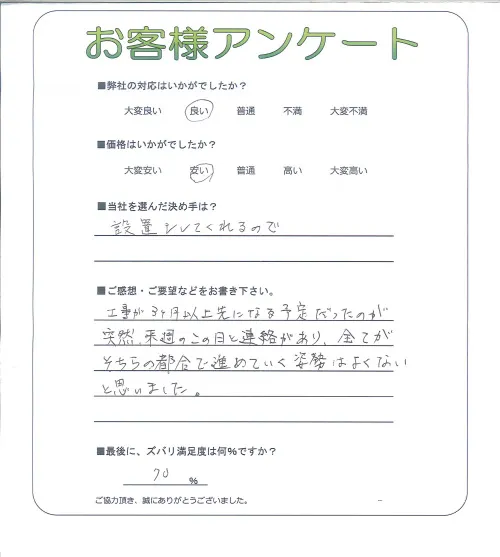 お客様アンケート
■弊社の対応はいかがでしたか？
大変良い 良い 普通 不満 大変不満
■価格はいかがでしたか？
大変安い 安い 普通 高い 大変高い
■当社を選んだ決め手は？
設置シしてくれるので
■ご感想・ご要望などをお書き下さい。
工事が3ヶ月以上先になる予定だったのが
突然、来週のこの日と連絡があり、全てが
そちらの都合で進めていく姿勢はよくない
と思いました。
■最後に、ズバリ満足度は何%ですか？
70 %
ご協力頂き、誠にありがとうございました。